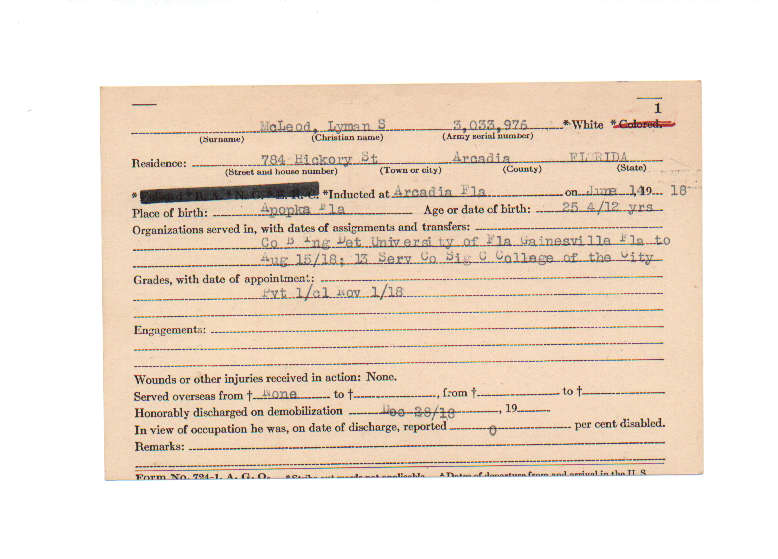 1
McLeod, Lyman S 3,033,976 *White *Colored.
(Surname) (Christian name) (Army serial number)
Residence: 784 Hickory St Arcadia FLORIDA
(Street and house number) (Town or city) (County) (State)
* *Inducted at Arcadia Fla on June 14, 19 18
Place of birth: Apopka Fla Age or date of birth: 25 4/12 yrs
Organizations served in, with dates of assignments and transfers:
Co B Tng Det University of Fla Gainesville Fla to
Aug 15/18; 13 Serv Co Sig C College of the City
Grades, with date of appointment:
Pvt 1/cl Nov 1/18
Engagements:
Wounds or other injuries received in action: None.
Served overseas from † None to †, from † to †
Honorably discharged on demobilization Dec 28/18, 19
In view of occupation he was, on date of discharge, reported 0 per cent disabled.
Remarks:
Form No. 724-1, A. G. O.